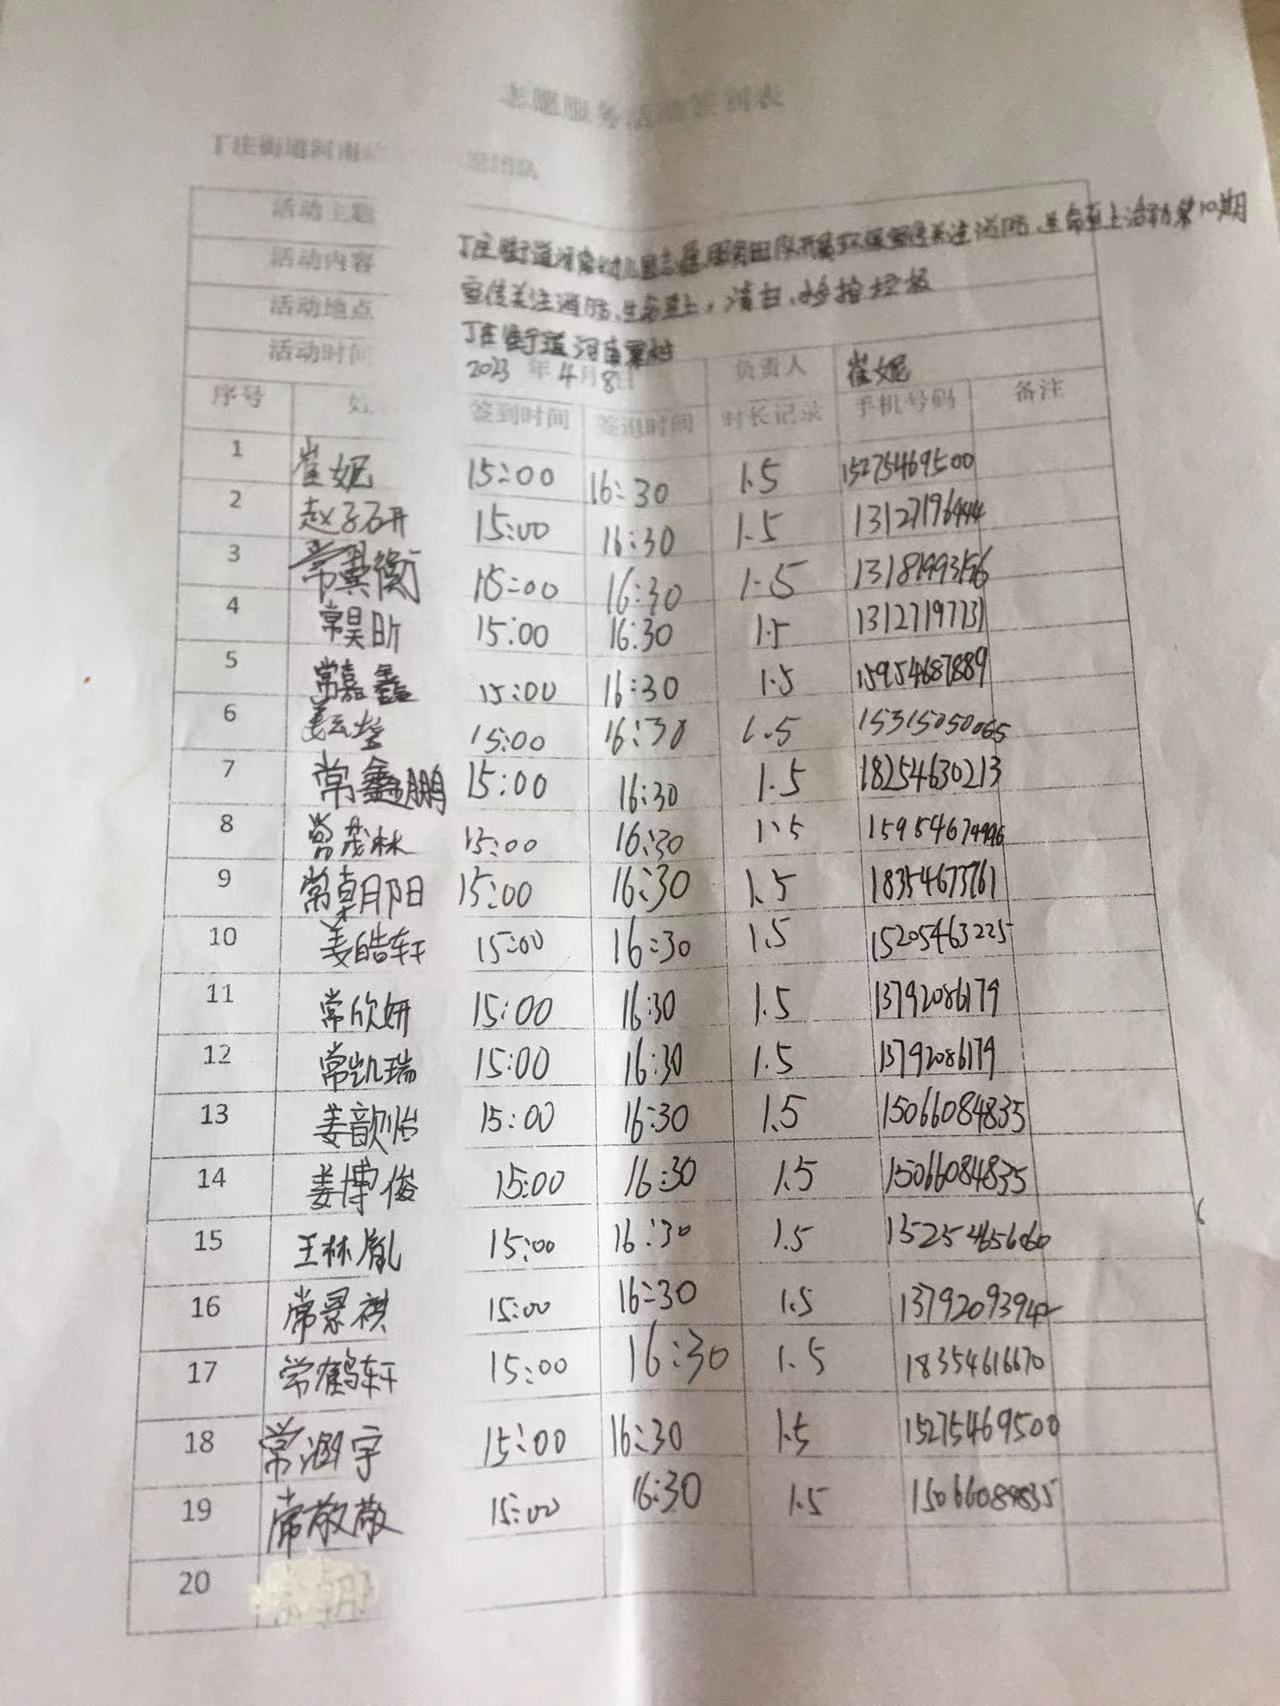 志愿服务活动签到表
丁庄街道河南
活动主题 丁庄街道河南幼儿园志愿服务团队开展环保宣传关注消防、生命至上活动第10期
活动内容 宣传关注消防、生命至上，清扫、捡拾垃圾
活动地点 丁庄街道河南
活动时间 2023 年 4月8日 负责人 崔妮
序号 签到时间 签退时间 时长记录 手机号码 备注
1 崔妮 15:00 16:30 1.5 15275469500
2 赵子研 15:00 16:30 1.5 13127196444
3 常翼衡 15:00 16:30 1.5
4 常昊昕 15:00 16:30 1.5 13127197731
5 常嘉鑫 15:00 16:30 1.5 15954687889
6 15:00 16:30 1.5 15315050065
7 常鑫鹏 15:00 16:30 1.5 18254630213
8 常茂林 15:00 16:30 1.5
9 常朝阳 15:00 16:30 1.5 18354673761
10 姜皓轩 15:00 16:30 1.5 15205463225
11 常欣妍 15:00 16:30 1.5 13792086179
12 常凯瑞 15:00 16:30 1.5 13792086179
13 姜歆怡 15:00 16:30 1.5 15066084835
14 姜博俊 15:00 16:30 1.5 15066084835
15 王林胤 15:00 16:30 1.5 15254656060
16 常景祺 15:00 16:30 1.5 13792093942
17 常鹤轩 15:00 16:30 1.5 18354616670
18 常涵宇 15:00 16:30 1.5 15275469500
19 常敬敬 15:00 16:30 1.5 15066084835
20